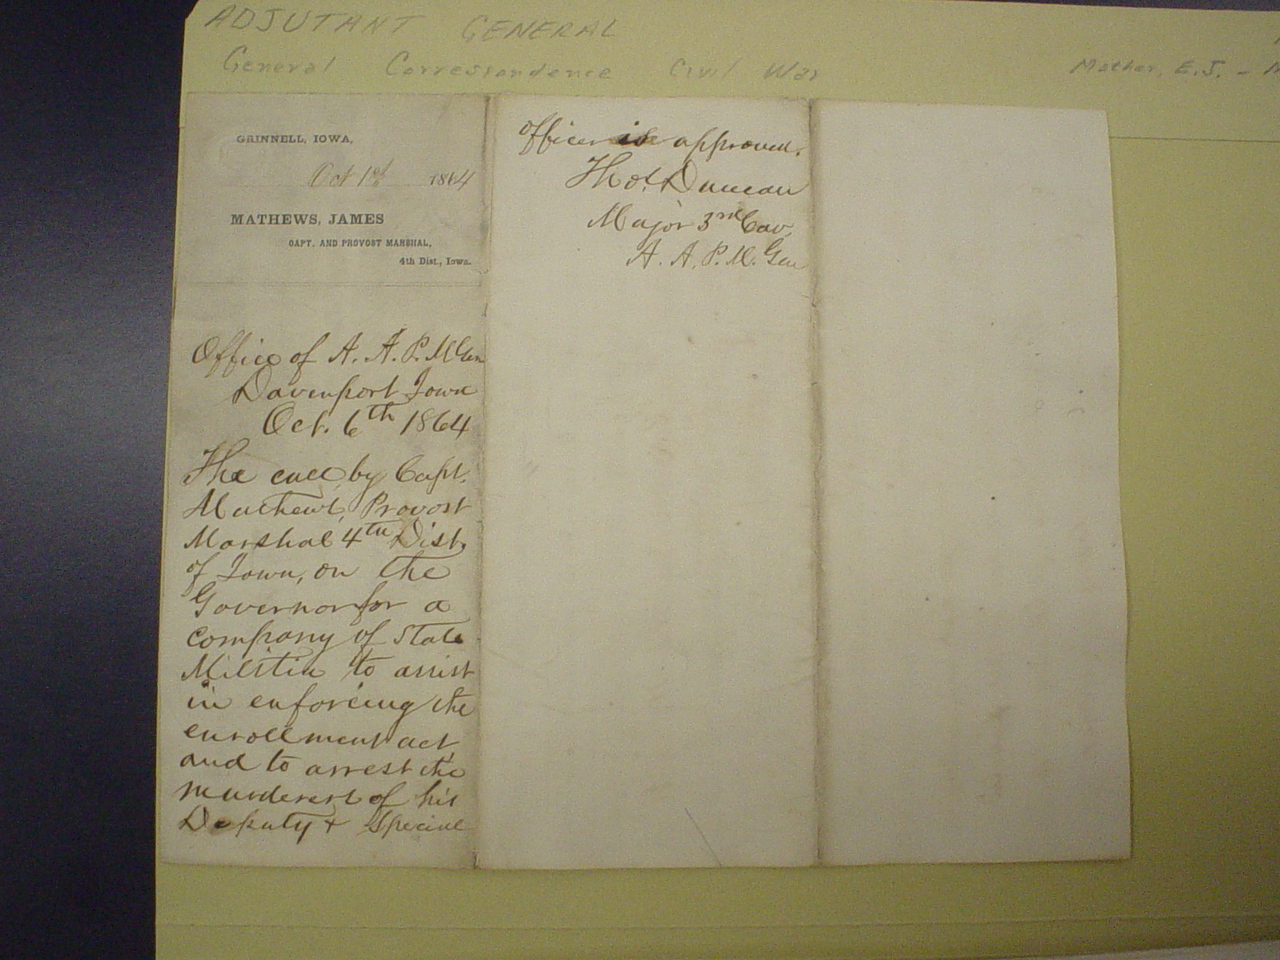 ADJUTANT GENERAL
General Correspondence Civil War
Mather, E.J. -
GRINNELL, IOWA,
Oct 1st 1864
MATHEWS, JAMES
CAPT. AND PROVOST MARSHAL,
4th Dist., Iowa.
Office of A. A. P. M Gen
Davenport Iowa
Oct. 6th 1864
The call by Capt.
Mathews, Provost
Marshal 4th Dist.
of Iowa, on the
Governor for a
company of State
Militia to assist
in enforcing the
enrollment act
and to arrest the
murderers of his
Deputy & Special
officer is approved.
Thos. Duncan
Major 3rd Cav.
A. A. P. M. Gen